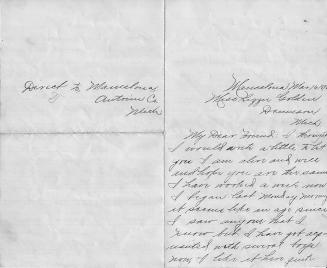 Direct to Mancelona
Antrim Co
Mich
Mancelona Mar
Miss Lizzie Golden
Mich
My Dear Friend: I thought
I would write a little to let
you I am alive and well
and hope you are the same
I have worked a week now
I began last Monday morning
it seems like an age since
I saw anyone that I
know but I have got acqu
ainted with several boys
now I like it here first